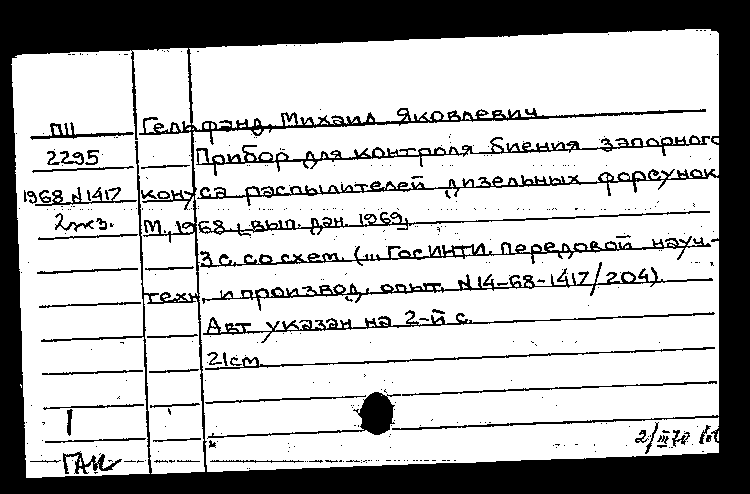 П11 Гельфанд, Михаил Яковлевич
2295 Прибор для контроля биения запорного
1968 N1417 конуса распылителей дизельных форсунок
2жз. М., 1968, [вып. дан. 1969].
3 с. со схем. (... ГосИНТИ. Передовой науч.-
техн. и производ. опыт. N14-68-1417/204).
Авт указан на 2-й с.
21см
1
2/III 70